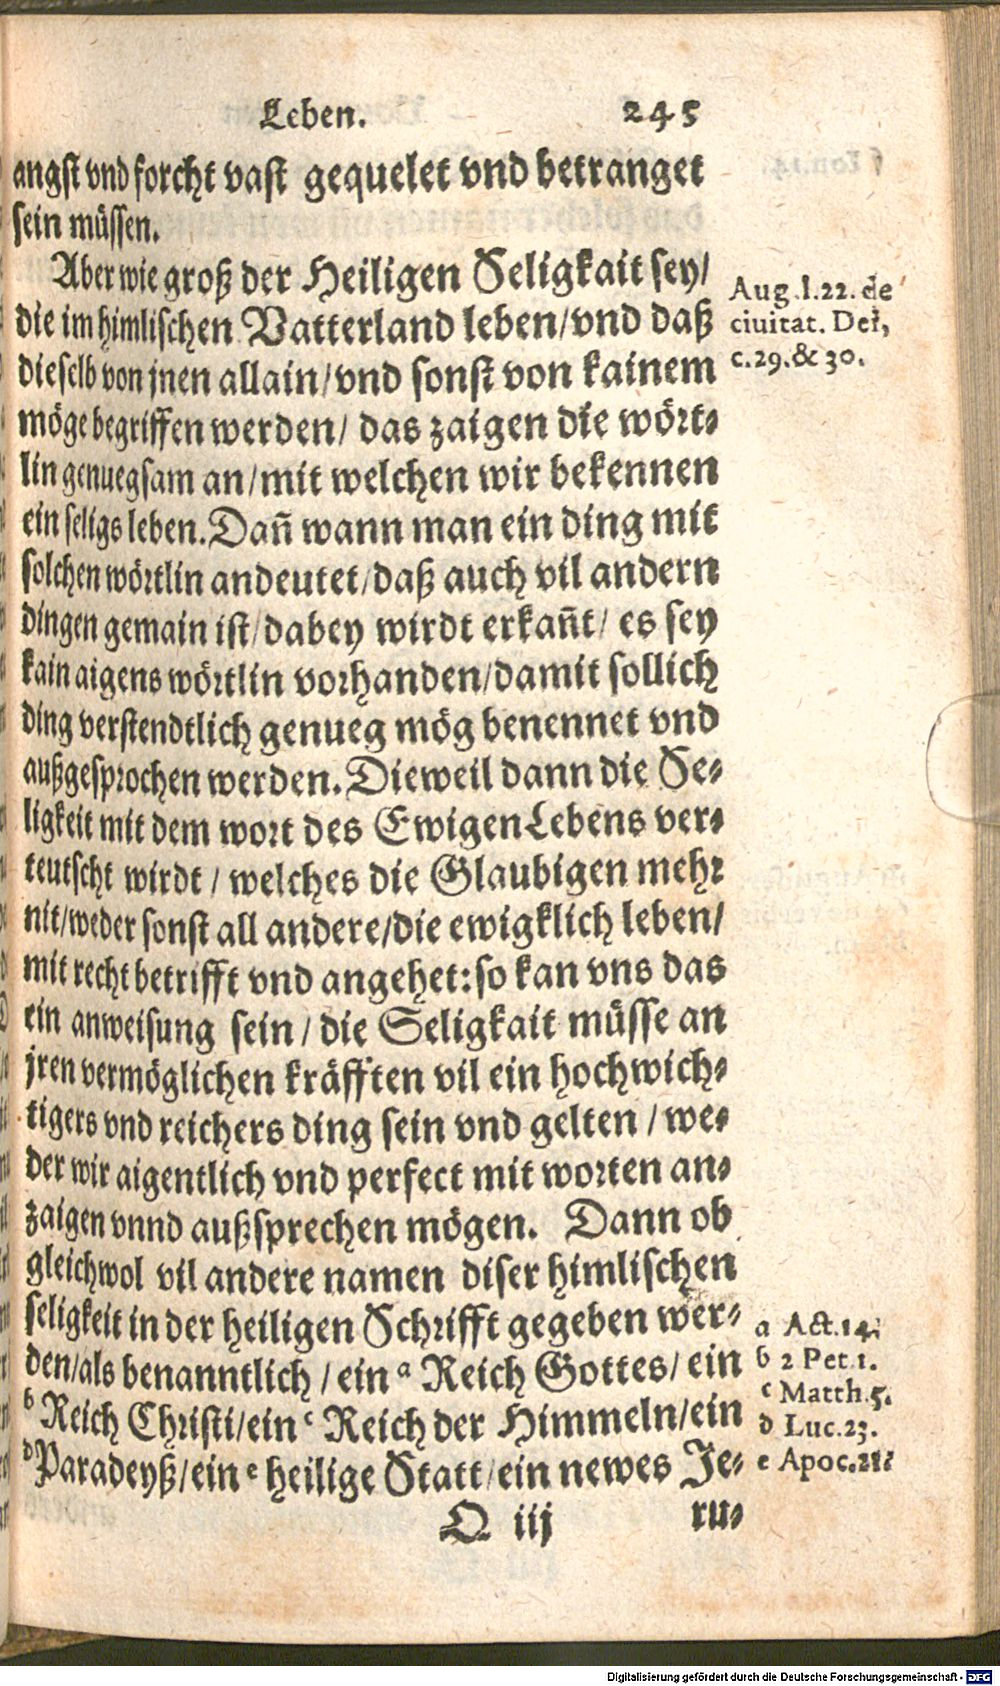 Leben. 245
angst vnd forcht vast gequelet vnd betranget
sein müssen.
Aber wie groß der Heiligen Seligkait sey/
die im himlischen Vatterland leben/vnd daß
dieselb von jnen allain/vnd sonst von kainem
möge begriffen werden/ das zaigen die wört-
lin genuegsam an/mit welchen wir bekennen
ein seligs leben. Dañ wann man ein ding mit
solchen wörtlin andeutet/daß auch vil andern
dingen gemain ist/dabey wirdt erkañt/ es sey
kain aigens wörtlin vorhanden/damit sollich
ding verstendtlich genueg mög benennet vnd
außgesprochen werden. Dieweil dann die Se-
ligkeit mit dem wort des Ewigen Lebens ver-
teutscht wirdt / welches die Glaubigen mehr
nit/weder sonst all andere/die ewigklich leben/
mit recht betrifft vnd angehet: so kan vns das
ein anweisung sein / die Seligkait müsse an
jren vermöglichen kräfften vil ein hochwich-
tigers vnd reichers ding sein vnd gelten / we-
der wir aigentlich vnd perfect mit worten an-
zaigen vnnd außsprechen mögen. Dann ob
gleichwol vil andere namen diser himlischen
seligkeit in der heiligen Schrifft gegeben wer-
den/als benanntlich / ein a Reich Gottes/ ein
b Reich Christi/ein c Reich der Himmeln/ein
d Paradeyß/ein e heilige Statt/ein newes Je-
Q iij ru-
Aug. l. 22. de
ciuitat. Dei,
c. 29. & 30.
a Act. 14.
b 2 Pet. 1.
c Matth. 5.
d Luc. 23.
e Apoc. 21.
Digitalisierung gefördert durch die Deutsche Forschungsgemeinschaft - DFG